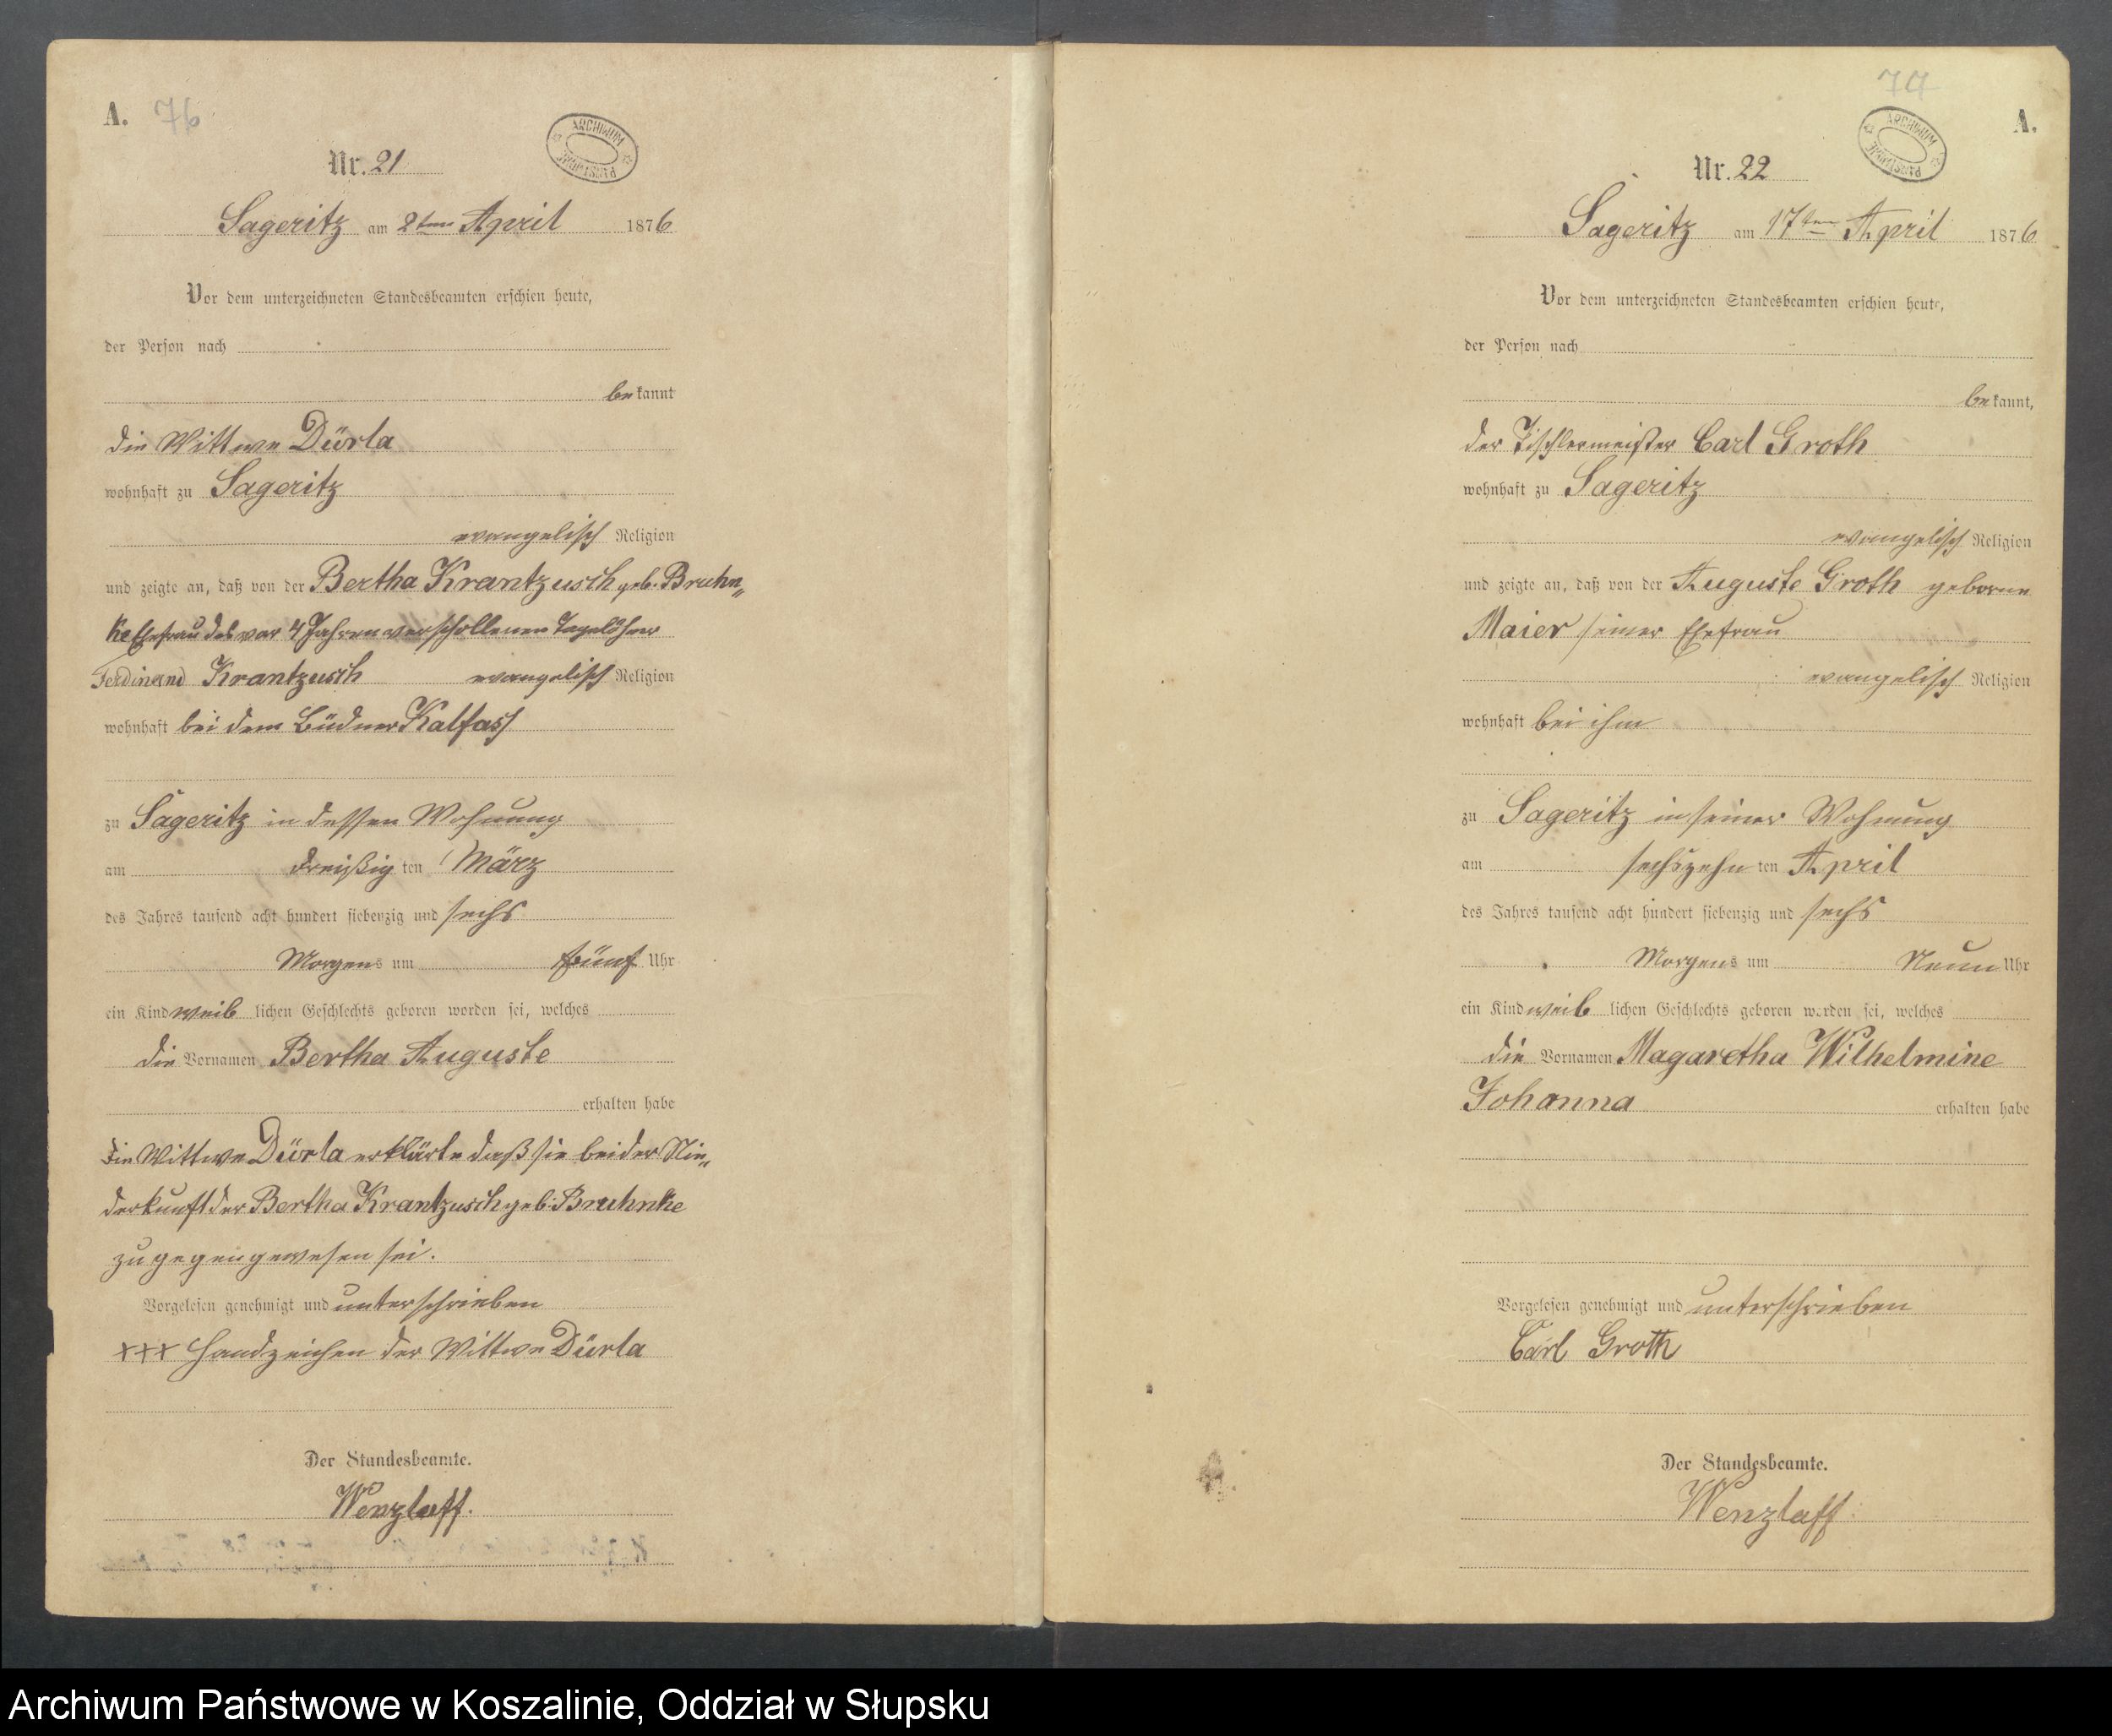 A. 76
ARCHIWUM PAŃSTWOWE
Nr. 21
Sageritz am 2ten April 1876
Vor dem unterzeichneten Standesbeamten erschien heute,
der Person nach
bekannt
die Wittwe Dürla
wohnhaft zu Sageritz
evangelisch Religion
und zeigte an, daß von der Bertha Krantzusch geb. Bruhn„
ke Ehefrau des vor 4 Jahren verschollenen Tagelöhner
Ferdinand Krantzusch evangelisch Religion
wohnhaft bei dem Büdner Kalfass
zu Sageritz in dessen Wohnung
am dreißig ten März
des Jahres tausend acht hundert siebenzig und sechs
Morgens um fünf Uhr
ein Kind weib lichen Geschlechts geboren worden sei, welches
die Vornamen Bertha Auguste
erhalten habe
die Wittwe Dürla erklärte daß sie bei der Nie„
derkunft der Bertha Krantzusch geb. Bruhnke
zugegen gewesen sei.
Vorgelesen genehmigt und unterschrieben
+++ Handzeichen der Wittwe Dürla
Der Standesbeamte.
Wenzlaff.
77
A.
ARCHIWUM PAŃSTWOWE
Nr. 22
Sageritz am 17ten April 1876
Vor dem unterzeichneten Standesbeamten erschien heute,
der Person nach
bekannt,
der Tischlermeister Carl Groth
wohnhaft zu Sageritz
evangelisch Religion
und zeigte an, daß von der Auguste Groth geborne
Maier seiner Ehefrau
evangelisch Religion
wohnhaft bei ihm
zu Sageritz in seiner Wohnung
am sechszehn ten April
des Jahres tausend acht hundert siebenzig und sechs
Morgens um Neun Uhr
ein Kind weib lichen Geschlechts geboren worden sei, welches
die Vornamen Magaretha Wilhelmine
Johanna erhalten habe
Vorgelesen genehmigt und unterschrieben
Carl Groth
Der Standesbeamte.
Wenzlaff
Archiwum Państwowe w Koszalinie, Oddział w Słupsku